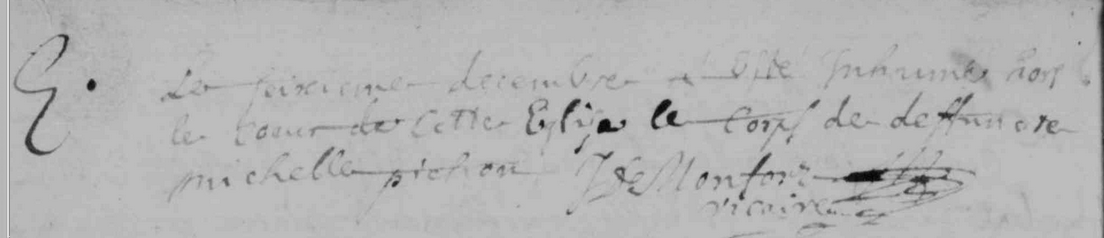 E.
Le seixieme decembre a esté Inhumé hors
le coeur de Cette Eglise le corps de deffuncte
michelle pichon J de Monfort
vicaire